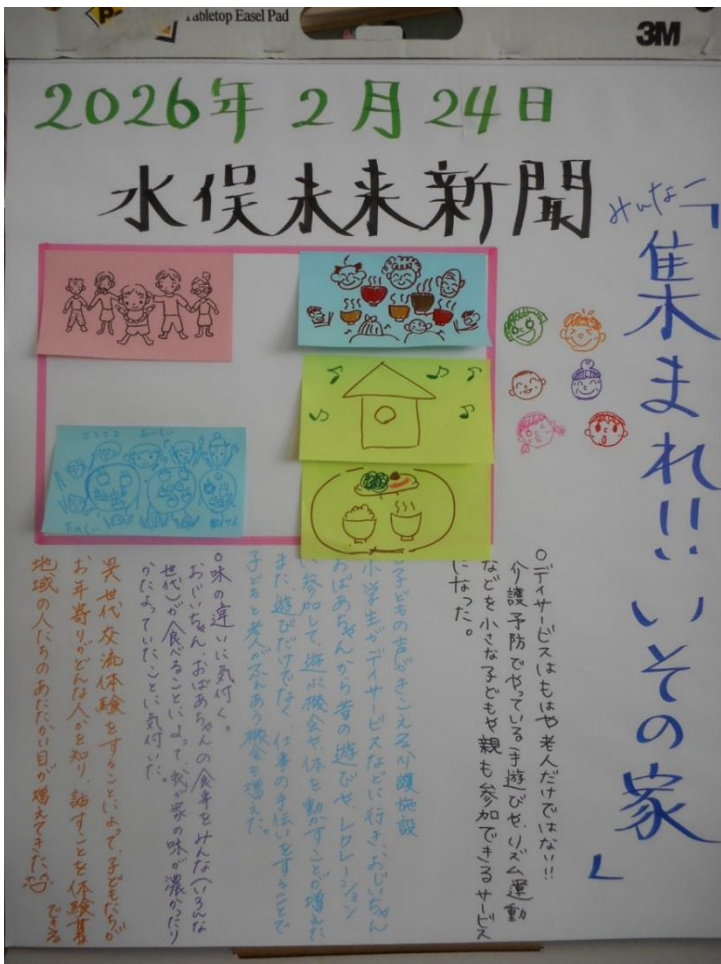 Tabletop Easel Pad
3M
2026年 2月 24日
水俣未来新聞
みんなー
「集まれ!!いその家」
おいしい
たのしい
○デイサービスはもはや老人だけではない!!
介護予防でやっている手遊びや、リズム運動
などを小さな子どもや親も参加できるサービス
になった。
子どもの声がきこえる介護施設
小学生がデイサービスなどに行き、おじいちゃん
おばあちゃんから昔の遊びや、レクレーション
に参加して、遊ぶ機会や、体を動かすことが増えた
また、遊びだけでなく、仕事の手伝いをすることで
子どもと老人がふれあう機会も増えた。
○味の違いに気付く。
おじいちゃん、おばあちゃんの食事をみんな(いろんな
世代)が食べることによって、我が家の味が濃かったり
かたよっていたことに気付いた。
異世代交流体験をすることによって、子どもたちが
お年寄りがどんな人かを知り、話すことを体験できる
地域の人たちのあたたかい目が増えてきた